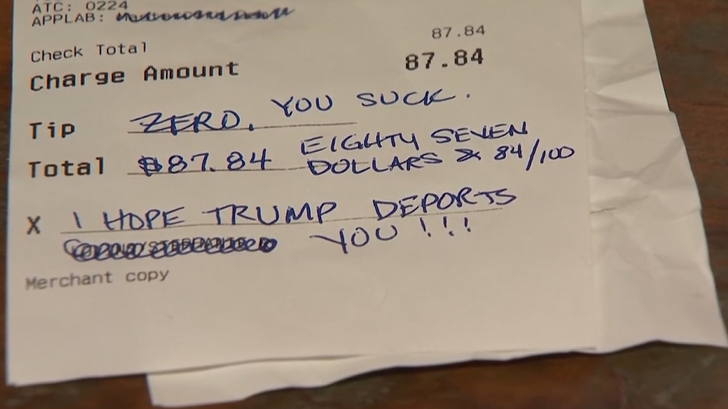 ATC: 0224
APPLAB:
87.84
Check Total
Charge Amount 87.84
Tip ZERO. YOU SUCK.
Total $87.84 EIGHTY SEVEN
DOLLARS & 84/100
X I HOPE TRUMP DEPORTS
YOU!!!
Merchant copy